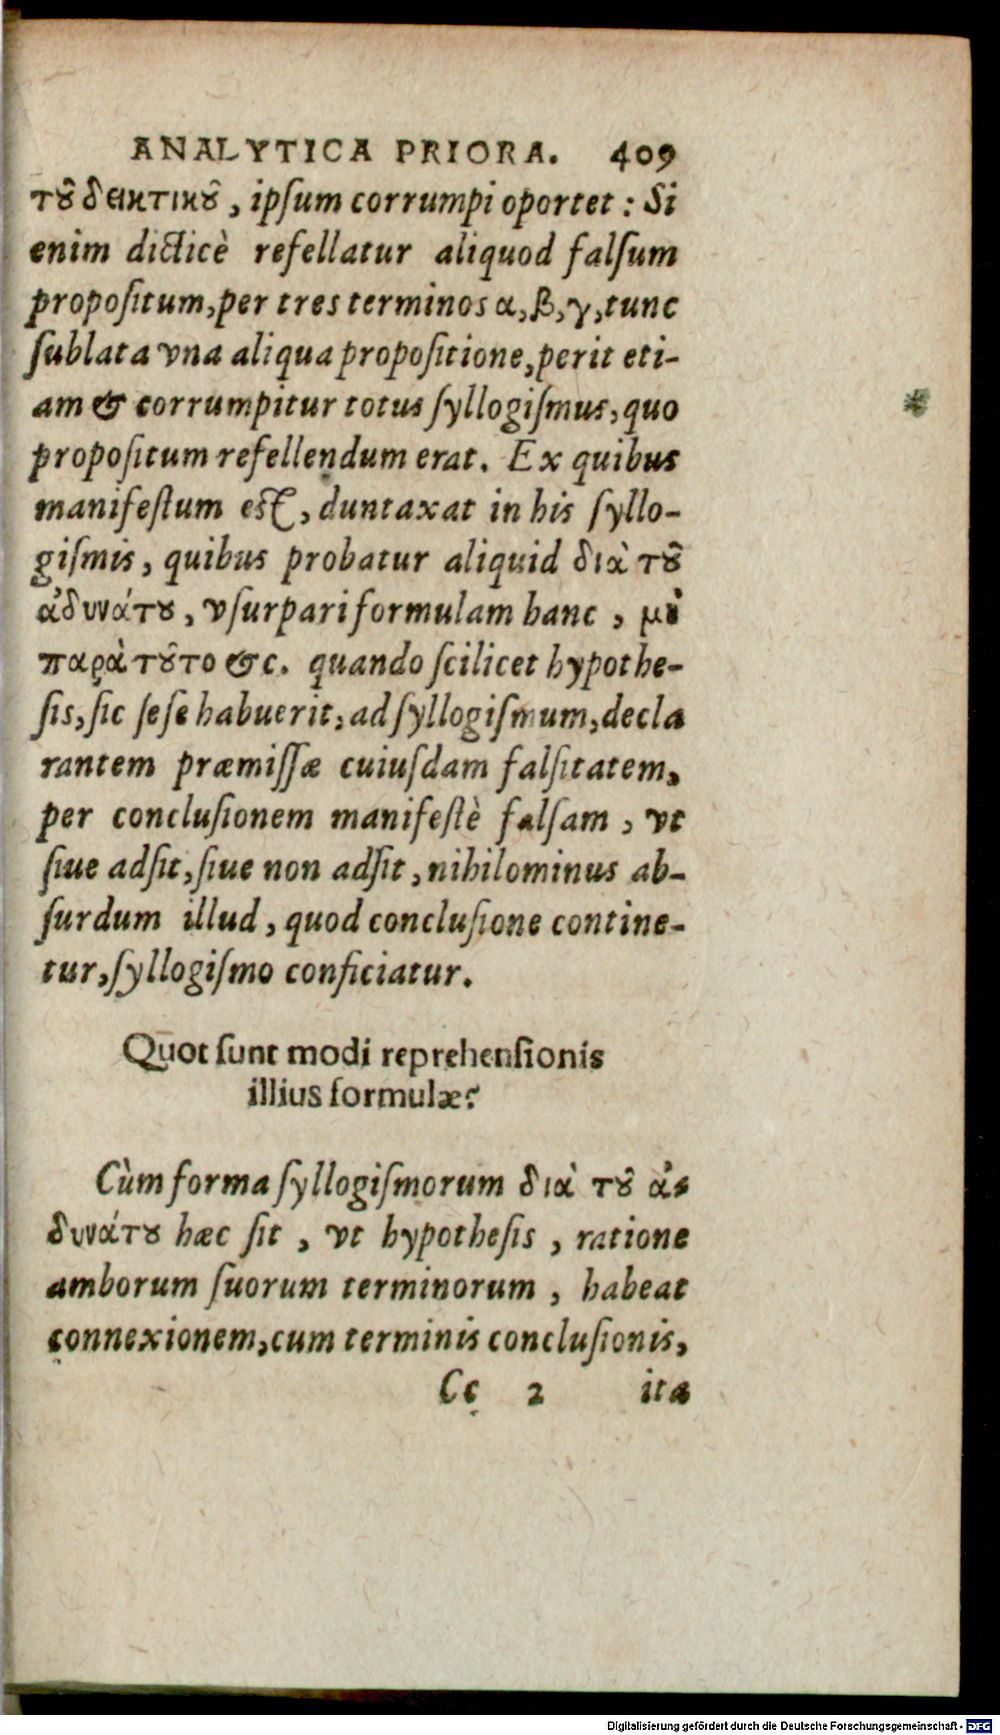 ANALYTICA PRIORA. 409
τȣ͂ δεικτικȣ͂, ipſum corrumpi oportet : Si
enim dicticè refellatur aliquod falſum
propoſitum, per tres terminos α, β, γ, tunc
ſublata vna aliqua propoſitione, perit eti-
am & corrumpitur totus ſyllogiſmus, quo
propoſitum refellendum erat. Ex quibus
manifeſtum eſt, duntaxat in his ſyllo-
giſmis, quibus probatur aliquid διὰ τȣ͂
ἀδυνάτȣ, vſurpari formulam hanc, μὴ
παρὰ τȣ͂το &c. quando ſcilicet hypothe-
ſis, ſic ſeſe habuerit, ad ſyllogiſmum, decla
rantem præmiſſæ cuiuſdam falſitatem,
per concluſionem manifeſtè falſam, vt
ſiue adſit, ſiue non adſit, nihilominus ab-
ſurdum illud, quod concluſione contine-
tur, ſyllogiſmo conficiatur.
Quot ſunt modi reprehenſionis
illius formulæ?
Cùm forma ſyllogiſmorum διὰ τȣ͂ ἀ-
δυνάτȣ hæc ſit, vt hypotheſis, ratione
amborum ſuorum terminorum, habeat
connexionem, cum terminis concluſionis,
Cc 2 ita
Digitalisierung gefördert durch die Deutsche Forschungsgemeinschaft - DFG